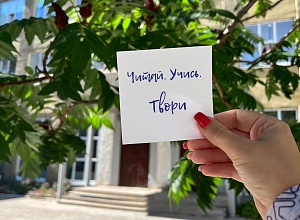 Читай. Учись.
Твори